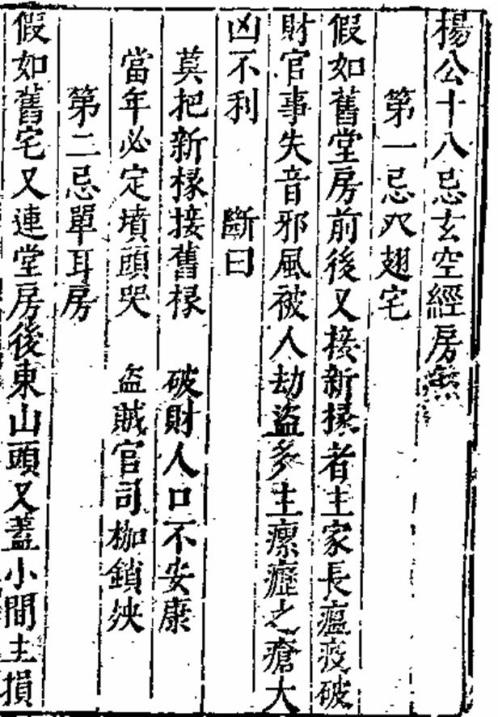 楊公十八忌玄空經房煞
第一忌穴翅宅
假如舊堂房前後又接新椽者主家長瘟疫破
財官事失音邪風被人劫盜多主瘰癧之瘡大
凶不利 斷曰
莫把新椽接舊椽 破財人口不安康
當年必定墳頭哭 盜賊官司枷鎖殃
第二忌單耳房
假如舊宅又連堂房後東山頭又蓋小間主損